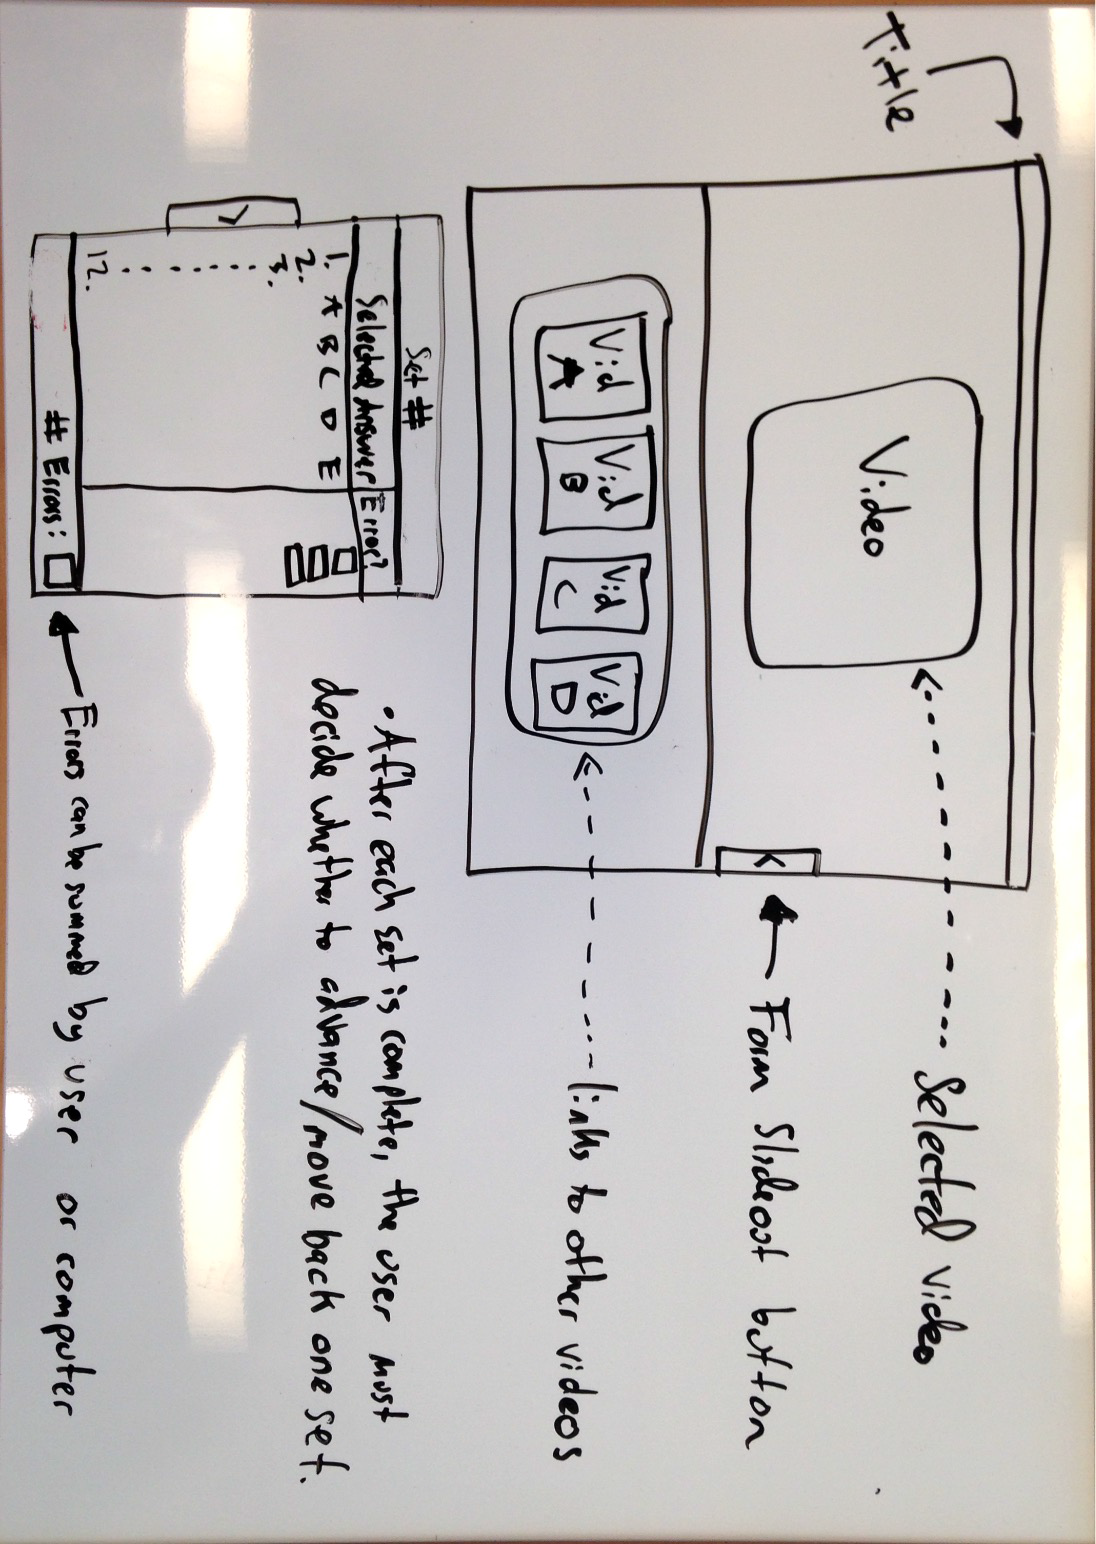 Title
Video
Selected video
<
Form Slideout button
Vid A
Vid B
Vid C
Vid D
links to other videos
Set #
Selected Answer
Error?
1. A B C D E
2.
3.
12.
>
# Errors:
• After each set is complete, the user must
decide whether to advance/move back one set.
Errors can be summed by user or computer